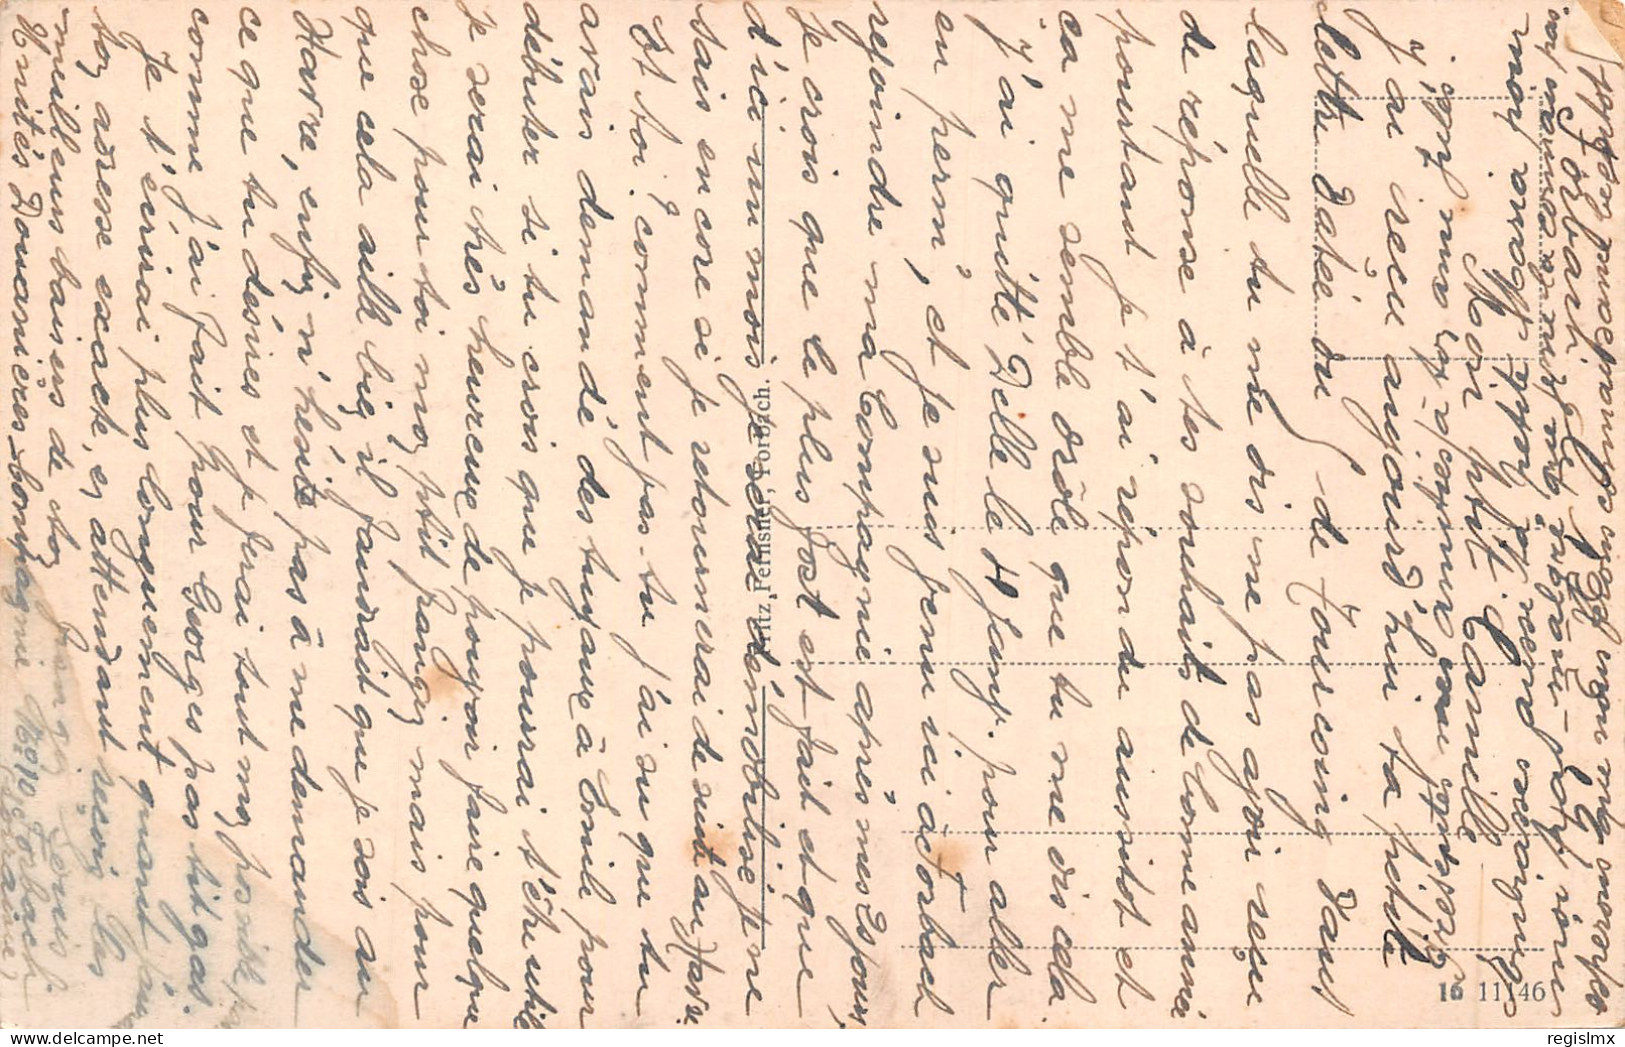 Forbach le
Mon ptit Camille
J'ai reçu aujourd'hui ta petite
lettre datée du de Tourcoing dans
laquelle tu me dis ne pas avoir reçu
de réponse à tes souhaits de bonne année
pourtant je t'ai répondu aussitot et
ca me semble drôle que tu me dis cela
J'ai quitté Delle le 4 janv. pour aller
en perm', et je suis venu ici à Forbach
rejoindre ma Compagnie après mes 25 jours,
Je crois que le plus fort est fait et que
d'ici un mois je serai démobilisé je ne
sais encore si je retournerai de suite au Havre
Et toi? comment vas-tu j'ai su que tu
avais demandé des tuyaux à Emile pour
débuter si tu crois que je pourrai t'être utile
Je serai très heureux de pouvoir faire quelque
chose pour toi mon ptit frangin mais pour
que cela aille bien il faudrait que je sois au
Havre, enfin n'hésite pas à me demander
ce que tu désires et je ferai tout mon possible
comme j'ai fait pour Georges pas tit gas.
Je t'écrirai plus longuement quand j'aurai
ton adresse exacte, en attendant reçois les
meilleurs baisers de ton frangin Louis
Unités Douanières Compagnie No 10 Forbach
(Lorraine)
Fritz Fernsner, Forbach.
16 11146
regislmx